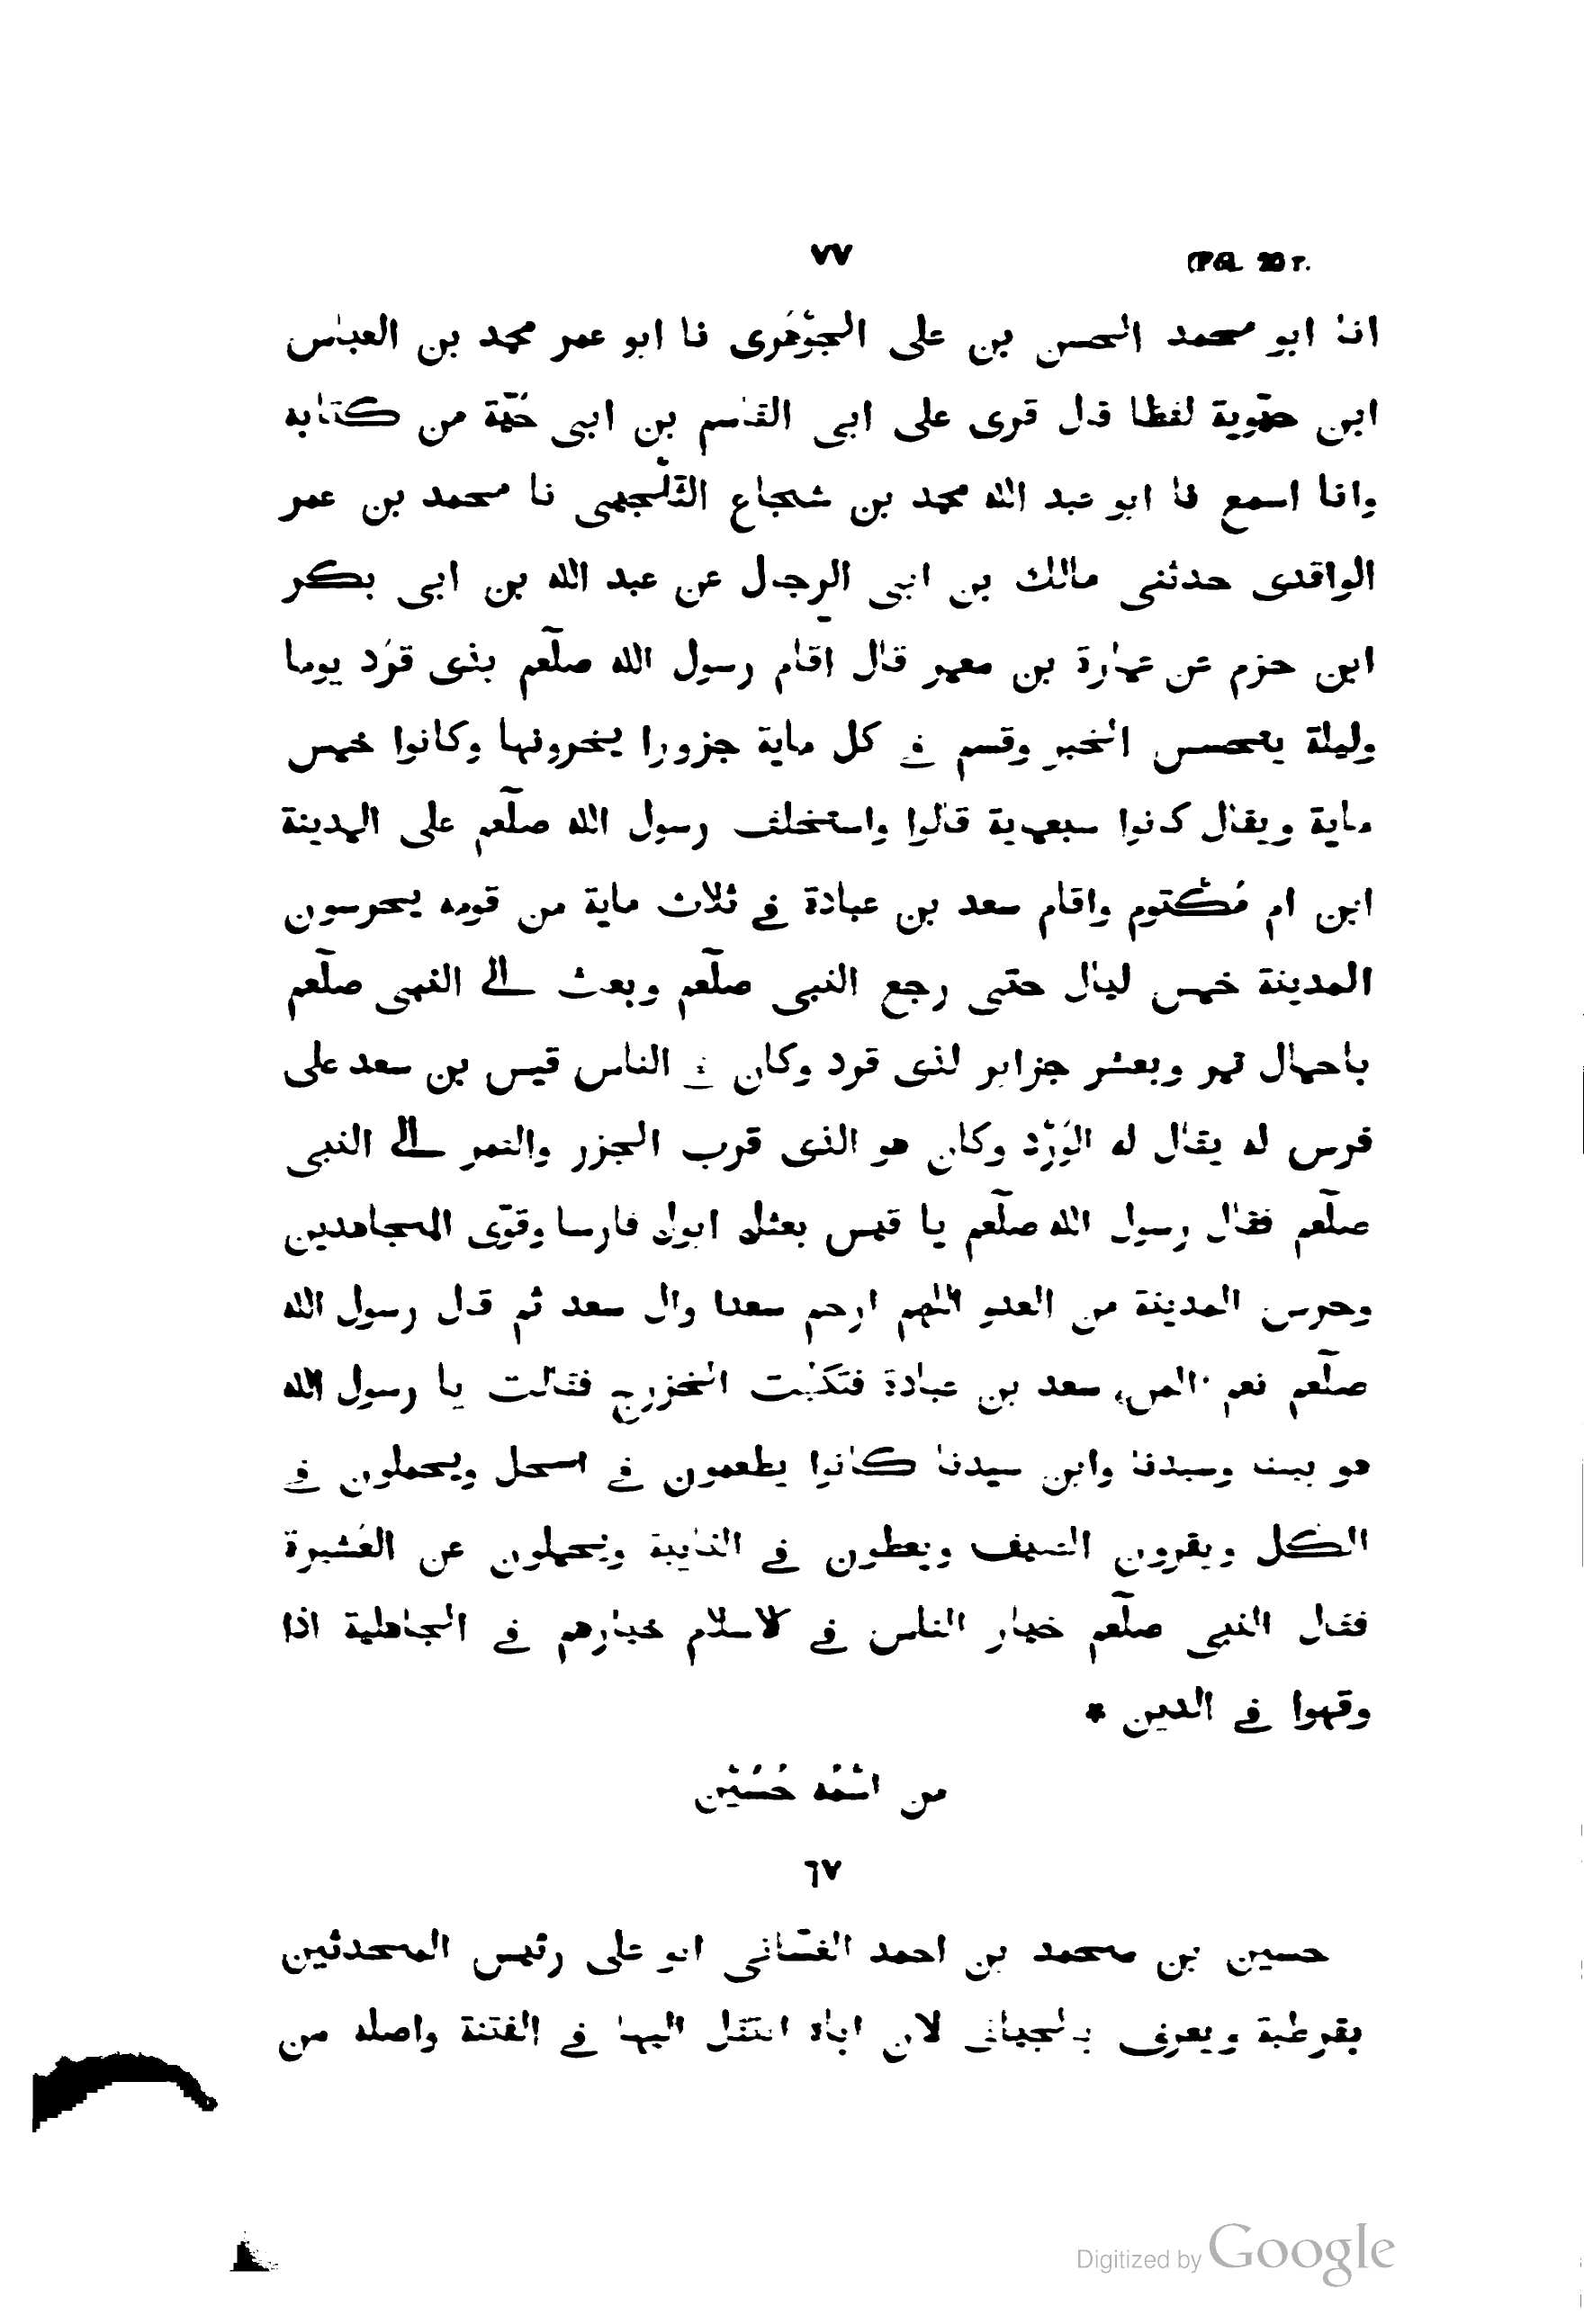 ٧٧ (Pol. 20 r.
انا ابو محمد الحسن بن على الجَوْهَرى نا ابو عمر محمد بن العباس
ابن حيّوية لفظا قال قرى على ابى القاسم بن ابى حَيّة من كتابه
وانا اسمع نا ابو عبد الله محمد بن شجاع الثَّلْجى نا محمد بن عمر
الواقدى حدثنى مالك بن ابى الرجال عن عبد الله بن ابى بكر
ابن حزم عن عمارة بن معمر قال اقام رسول الله صلّعم بذى قَرَد يوما
وليلة يتحسس الخبر وقسم في كل ماية جزورا ينحرونها وكانوا خمس
ماية ويقال كانوا سبعماية قالوا واستخلف رسول الله صلّعم على المدينة
ابن ام مَكْتوم واقام سعد بن عبادة في ثلاث ماية من قومه يحرسون
المدينة خمس ليال حتى رجع النبى صلّعم وبعث الى النبى صلّعم
باحمال تمر وبعشر جزاير لذى قرد وكان في الناس قيس بن سعد على
فرس له يقال له الوَرْد وكان هو الذى قرب الجزر والتمر الى النبى
صلّعم فقال رسول الله صلّعم يا قيس بعثك ابوك فارسا وقوّى المجاهدين
وحرس المدينة من العدو اللهم ارحم سعدا وال سعد ثم قال رسول الله
صلّعم نعم المرء سعد بن عبادة فتكلمت الخزرج فقالت يا رسول الله
هو وسيدنا وابن سيدنا كانوا يطعمون في المحل ويحملون في
الكل ويقرون الضيف ويعطون في النايبة ويحملون عن العَشيرة
فقال النبى صلّعم خيار الناس في الاسلام خيارهم في الجاهلية اذا
وقهوا في الدين *
من اسْمُه حُسَيْن
٦٧
حسين بن محمد بن احمد الغسّانى ابو على رئيس المحدثين
بقرطبة ويعرف بالجيانى لان اباه انتقل اليها في الفتنة واصله من
Digitized by Google